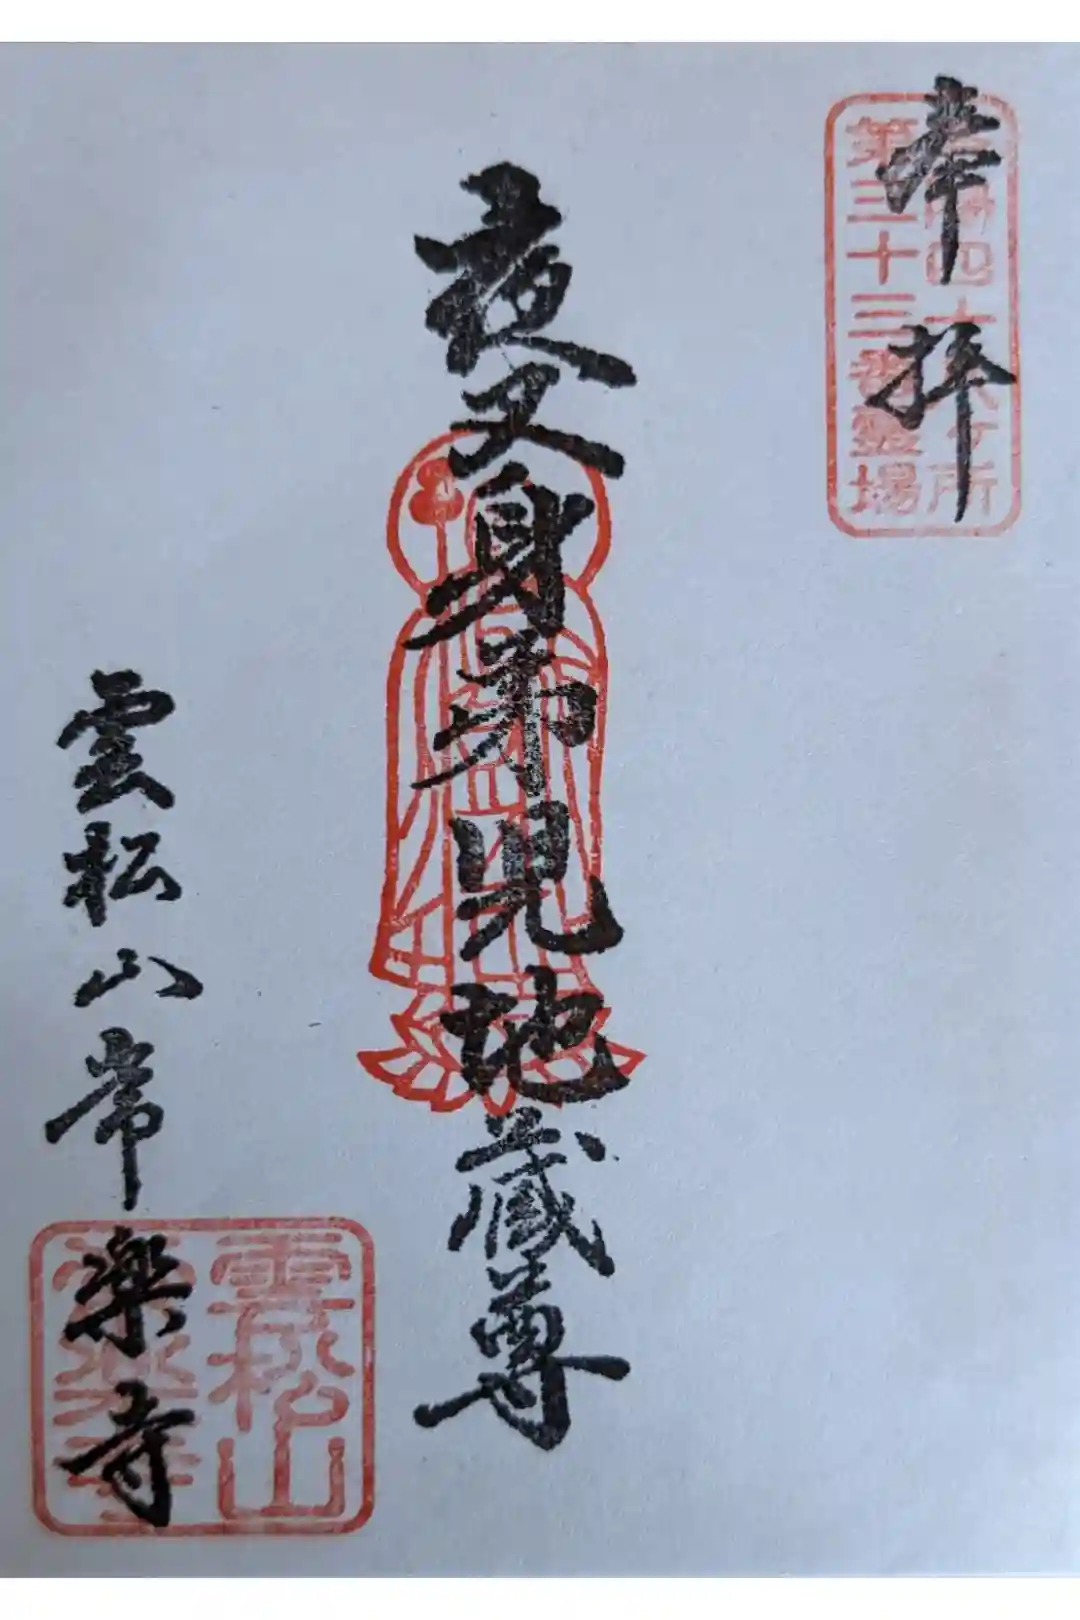 奉拝
四十八ヶ所
第三十三番霊場
夜叉身弟児地蔵尊
雲松山常楽寺
雲松山
常楽寺